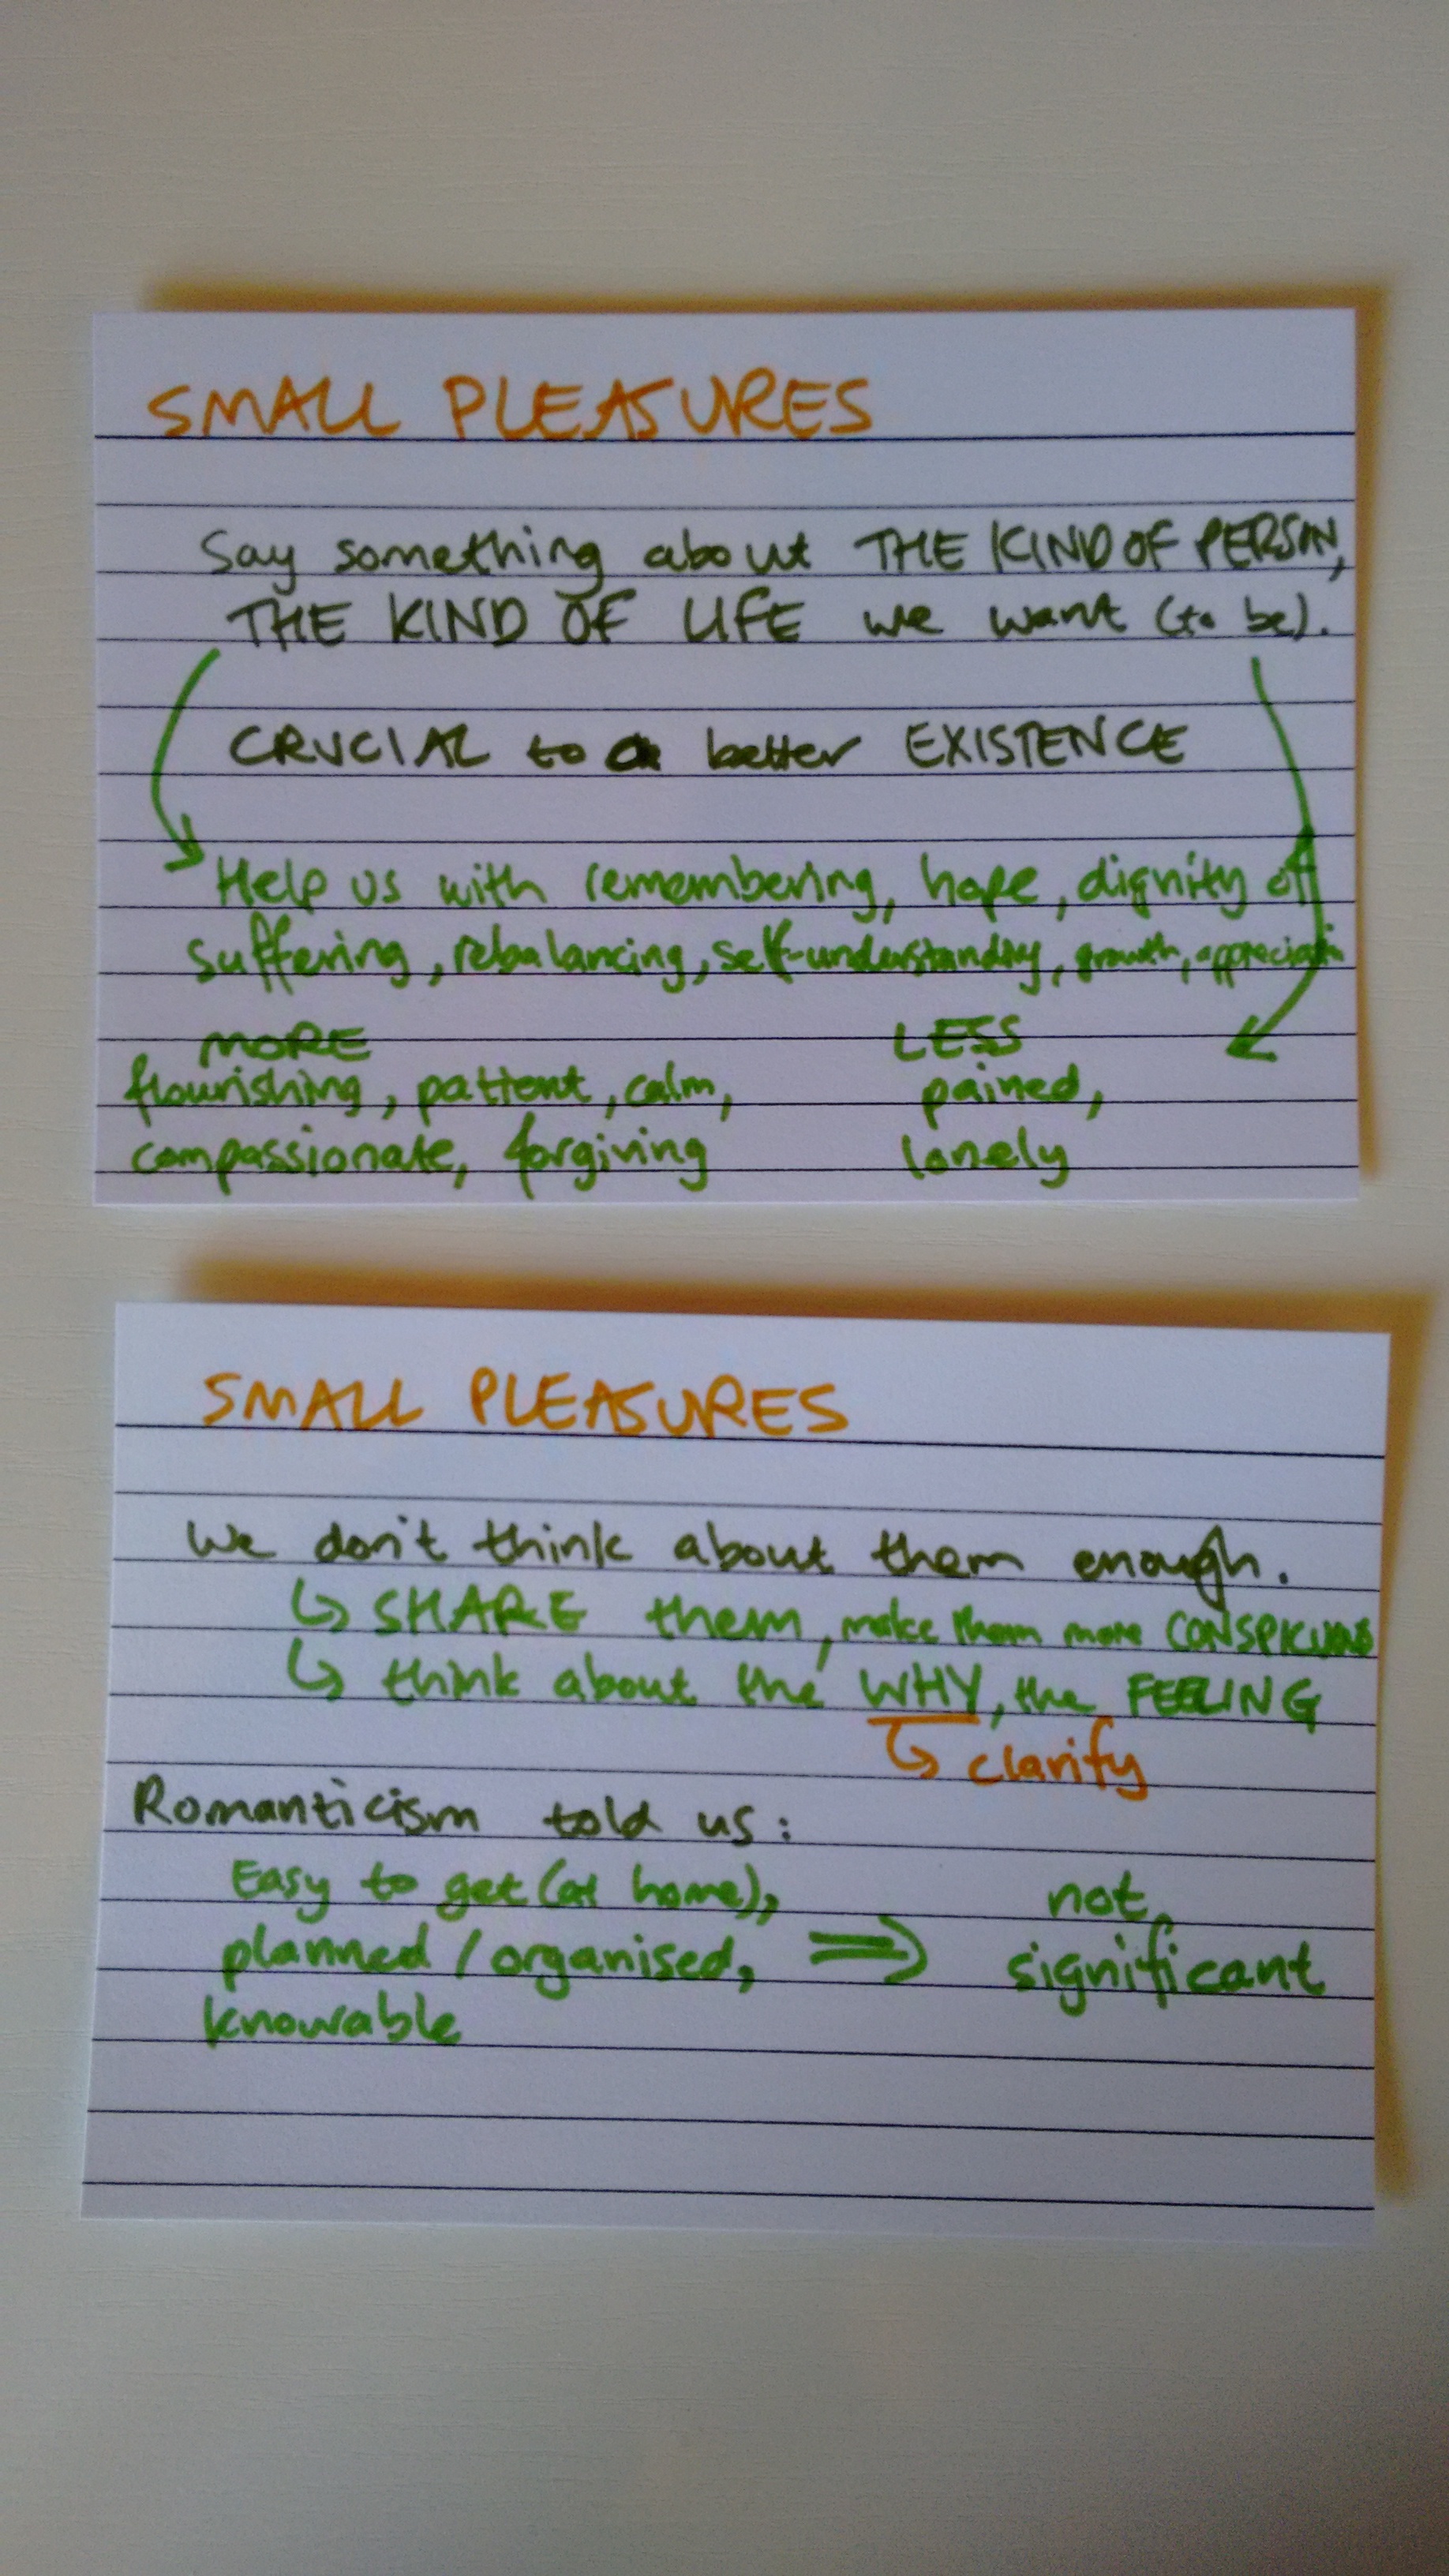 SMALL PLEASURES
Say something about THE KIND OF PERSON,
THE KIND OF LIFE we want (to be).
CRUCIAL to a better EXISTENCE
Help us with remembering, hope, dignity of
suffering, rebalancing, self-understanding, growth, appreciation
MORE LESS
flourishing, patient, calm, pained,
compassionate, forgiving lonely
SMALL PLEASURES
We don't think about them enough.
↳ SHARE them, make them more CONSPICUOUS
↳ think about the WHY, the FEELING
↳ clarify
Romanticism told us:
Easy to get (at home), not
planned / organised, ⇒ significant
knowable